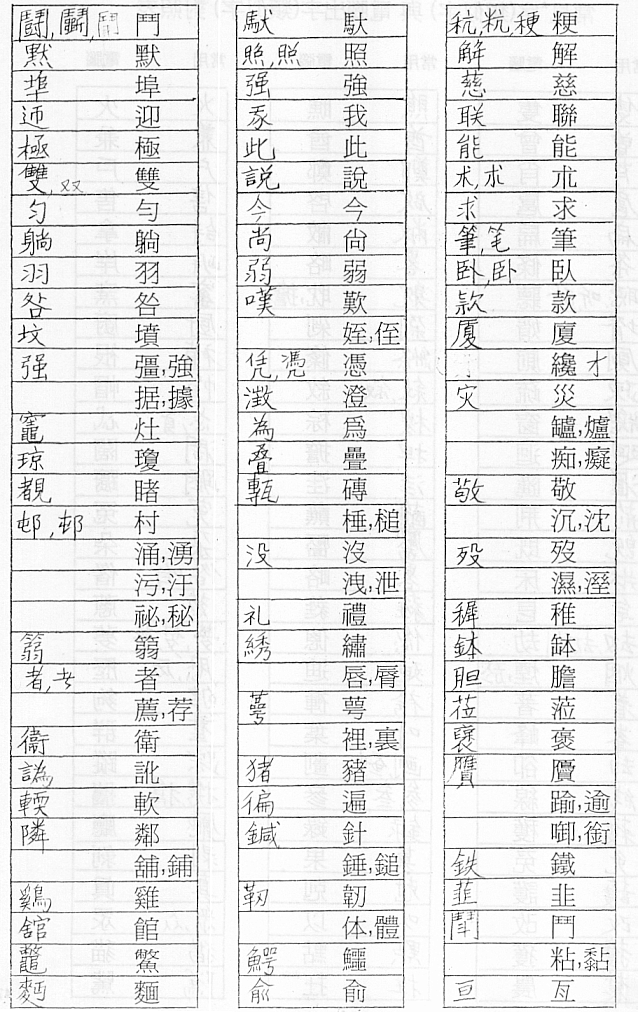 鬪,鬭,鬦 鬥
黙 默
埠 埠
迊 迎
極 極
雙,双 雙
匀 勻
躺 躺
羽 羽
咎 咎
坟 墳
强 彊,強
据,據
竈 灶
琼 瓊
覩 睹
邨,邨 村
涌,湧
污,汙
祕,秘
篛 篛
者,耂 者
薦,荐
衞 衛
譌 訛
輭 軟
隣 鄰
舖,鋪
鷄 雞
舘 館
鼈 鱉
麪 麵
馱 馱
照,照 照
强 強
我
此 此
説 說
今 今
尚 尙
弱 弱
嘆 歎
姪,侄
凭,凴 憑
澂 澄
為 爲
叠 疊
甎 磚
棰,槌
没 沒
洩,泄
礼 禮
綉 繡
唇,脣
蕚 萼
裡,裏
猪 豬
徧 遍
鍼 針
錘,鎚
靭 韌
体,體
鰐 鱷
俞 兪
秔,粇,稉 粳
解 解
慈 慈
联 聯
能 能
术,朮 朮
求 求
筆,笔 筆
卧,卧 臥
款 款
厦 廈
纔 才
灾 災
罏,爐
痴,癡
敬 敬
沉,沈
殁 歿
濕,溼
穉 稚
鉢 缽
胆 膽
莅 蒞
襃 褒
贋 贗
踰,逾
啣,銜
鉄 鐵
韮 韭
鬥
粘,黏
亘 亙